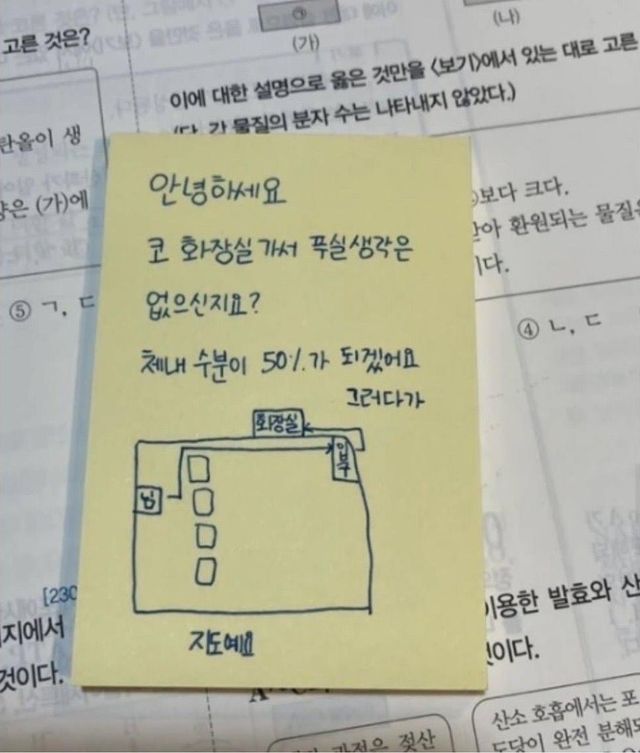 고른 것은?
㉠
(가)
(나)
이에 대한 설명으로 옳은 것만을 〈보기〉에서 있는 대로 고른
(단, 각 물질의 분자 수는 나타내지 않았다.)
탄올이 생
양은 (가)에
보다 크다.
환원되는 물질은
이다.
⑤ ㄱ, ㄷ
④ ㄴ, ㄷ
안녕하세요
코 화장실가서 푸실생각은
없으신지요?
체내 수분이 50%가 되겠어요
그러다가
화장실
입구
님
지도예요
[230
지에서
것이다.
이용한 발효와 산
것이다.
과정은 젖산
산소 호흡에서는 포
도당이 완전 분해되